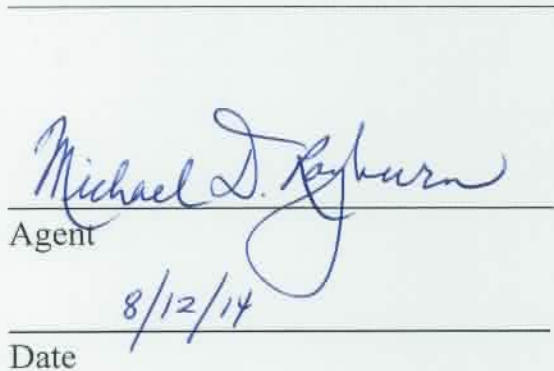 Michael D. Rayburn
Agent
8/12/14
Date